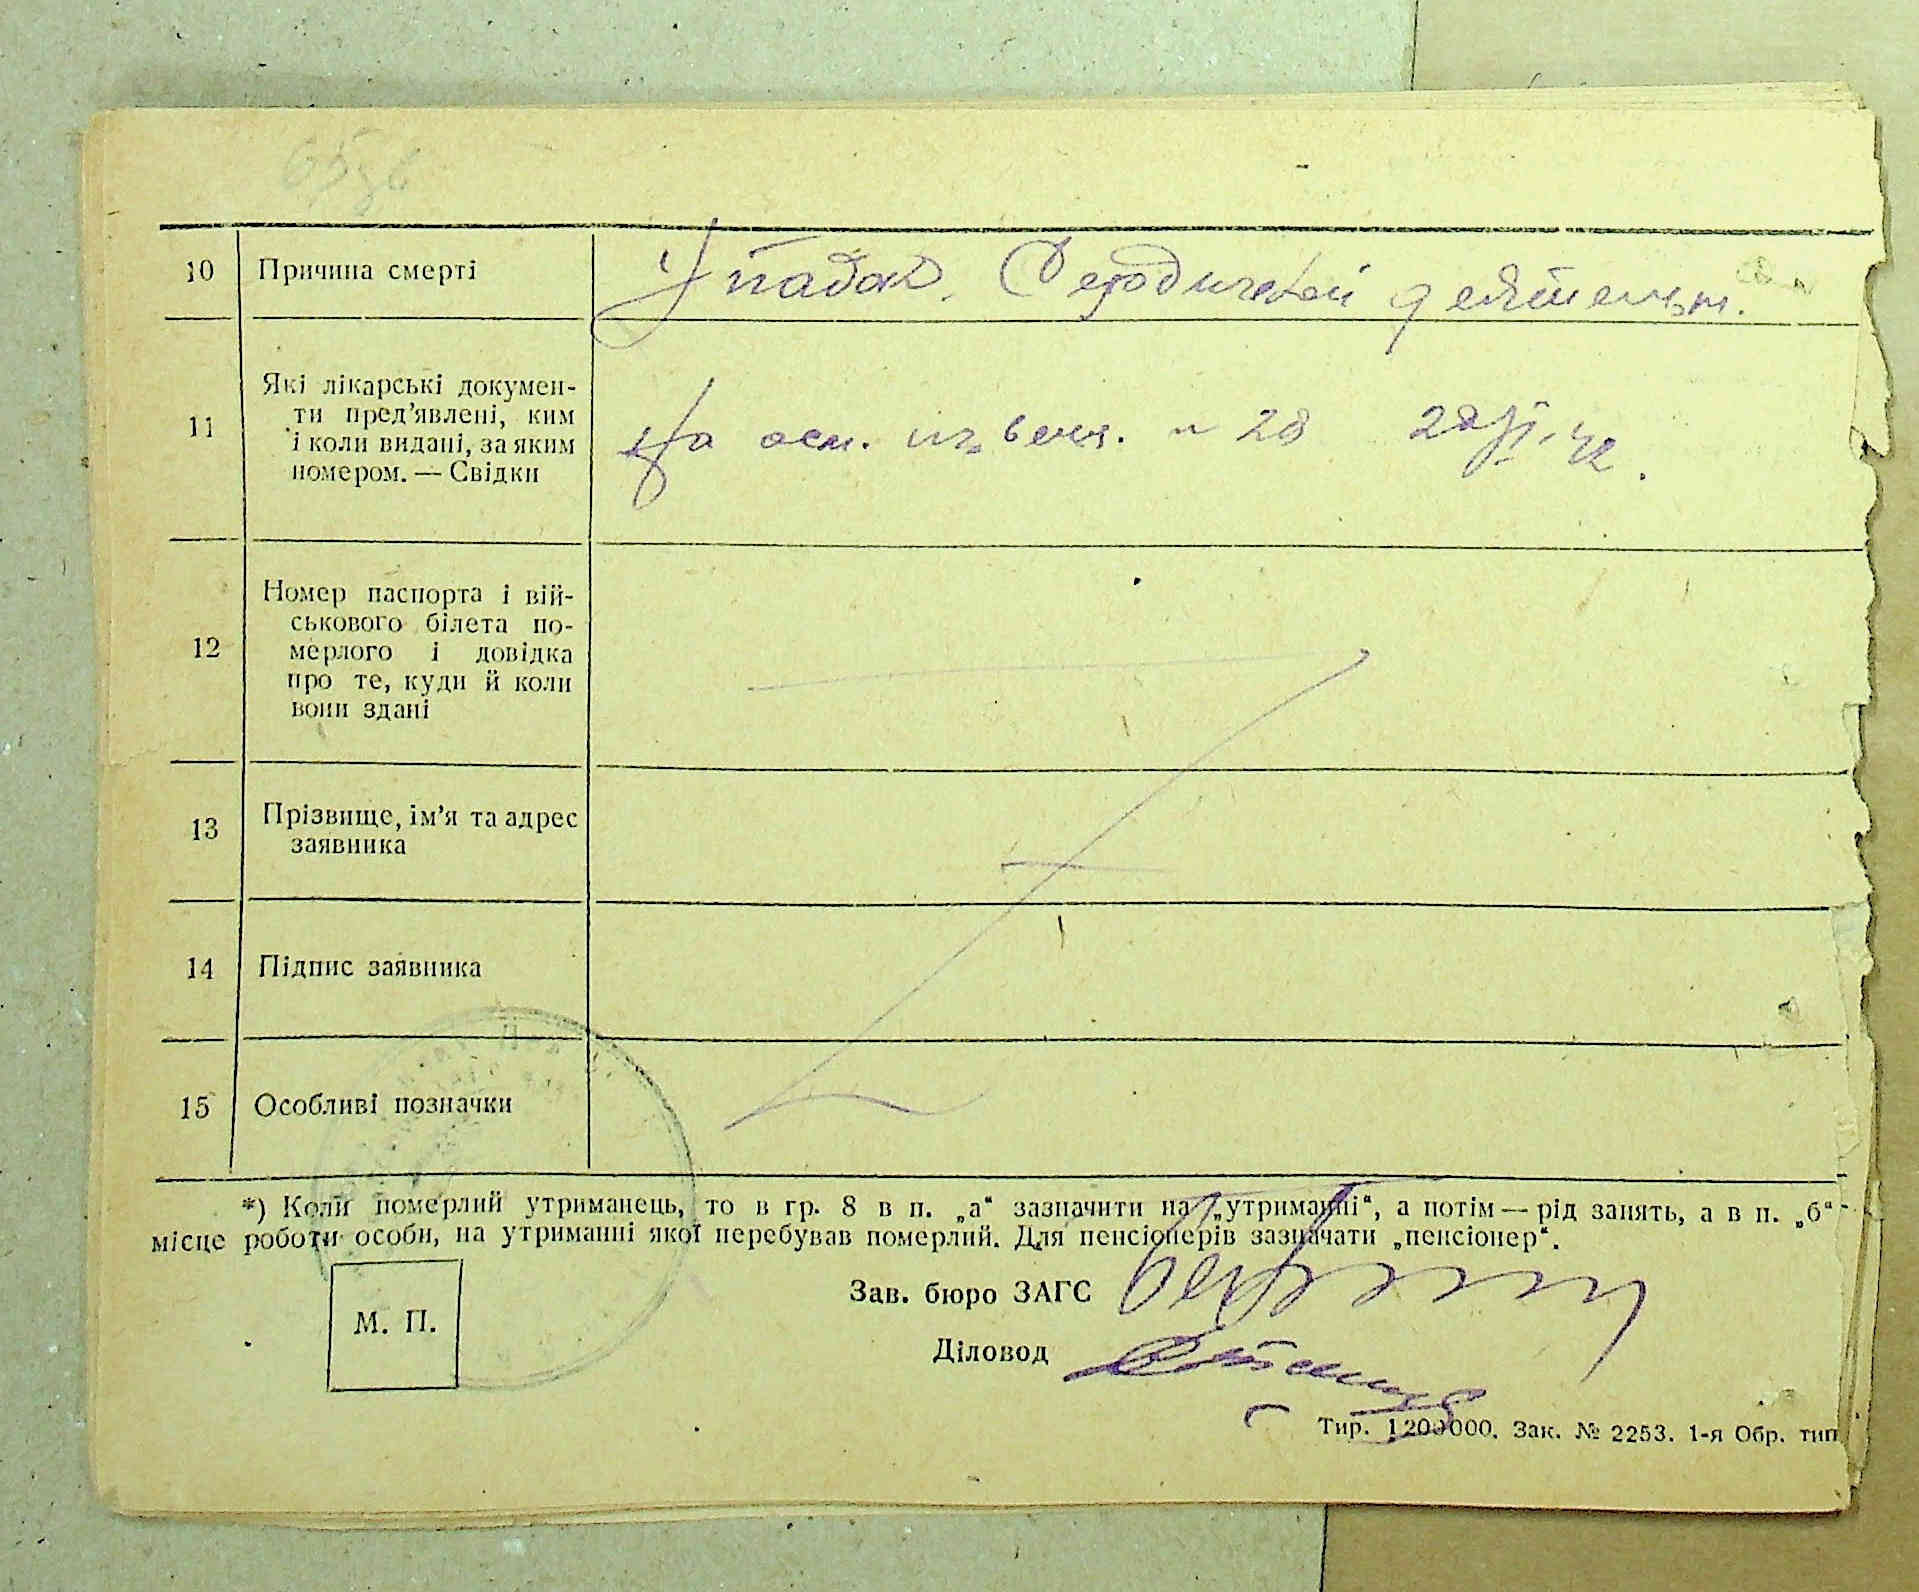 65зв
10 Причина смерті Упадок Сердичекой деятельн.
11 Які лікарські докумен-
ти пред’явлені, ким
і коли видані, за яким
номером. — Свідки
На осн. извещ. № 28
12 Номер паспорта і вій-
ськового білета по-
мерлого і довідка
про те, куди й коли
вони здані
13 Прізвище, ім’я та адрес
заявника
14 Підпис заявника
15 Особливі позначки
*) Коли померлий утриманець, то в гр. 8 в п. „а“ зазначити на „утриманні“, а потім — рід занять, а в п. „б“ -
місце роботи особи, на утриманні якої перебував померлий. Для пенсіонерів зазначати „пенсіонер“.
Зав. бюро ЗАГС
М. П.
Діловод
Тир. 1200000. Зак. № 2253. 1-я Обр. тип